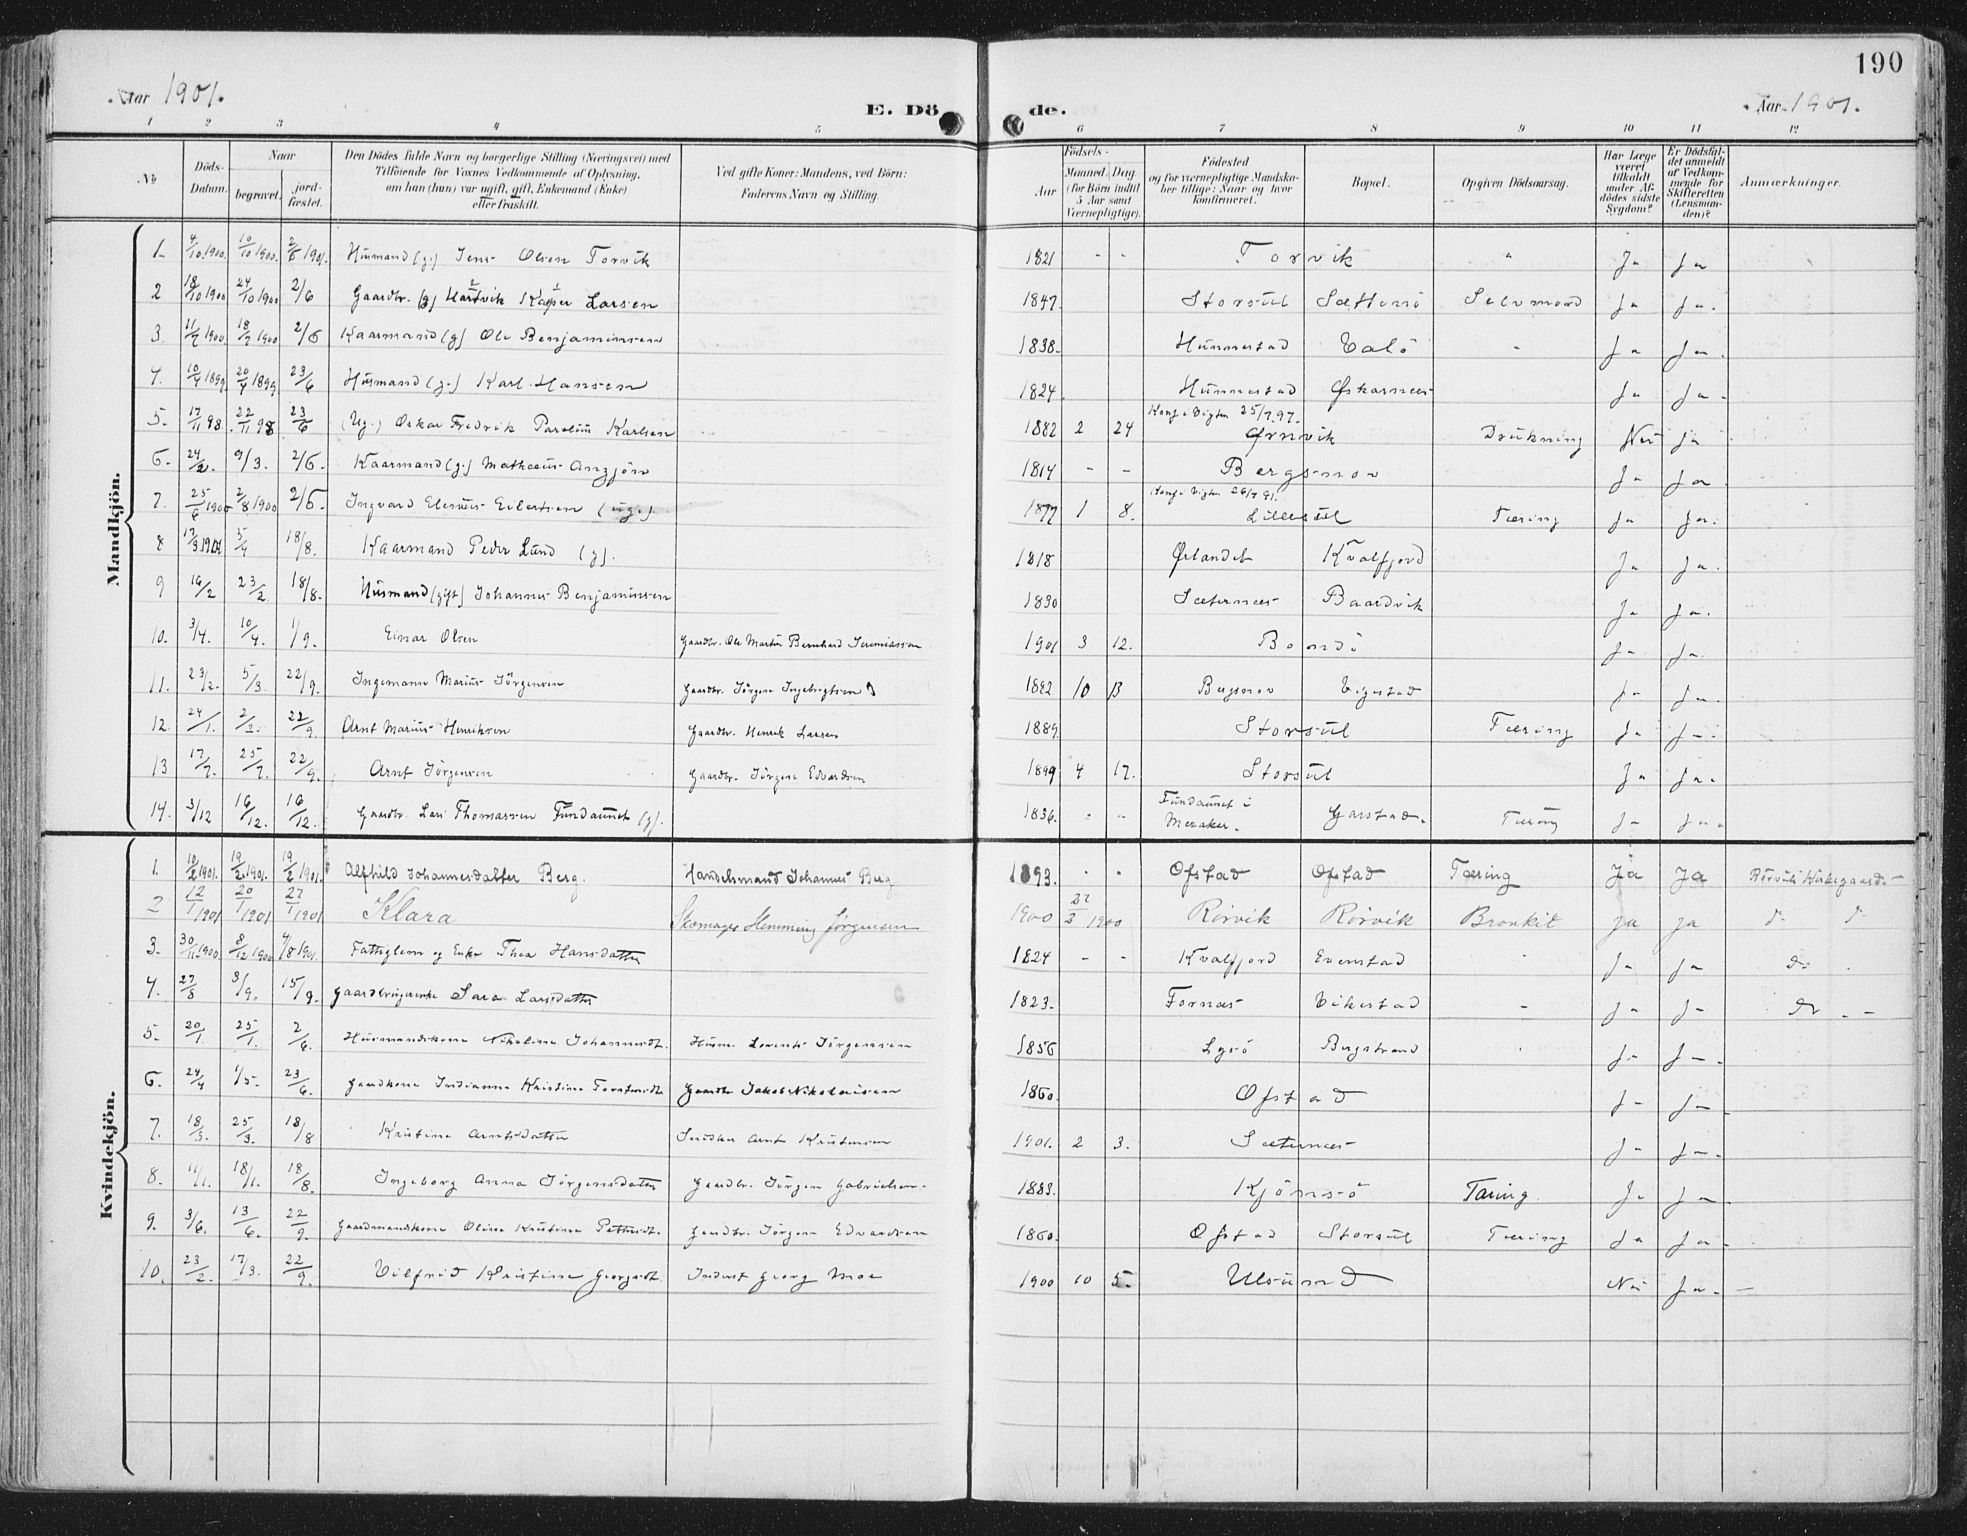 190
Aar 1901.
E. Dö
de.
Aar 1901.
1 2 3 4 5 6 7 8 9 10 11 12
No.
Döds-Datum.
Naar
begravet.
jord-fæstet.
Den Dödes fulde Navn og borgerlige Stilling (Næringsvei) med
Tilföiende for Voxnes Vedkommende af Oplysning,
om han (hun) var ugift, gift, Enkemand (Enke)
eller fraskilt.
Ved gifte Koner: Mandens, ved Börn:
Faderens Navn og Stilling.
Födsels-
Aar
Maaned. Dag.
(for Börn indtil
5 Aar samt
Værnepligtige).
Födested
og for værnepligtige Mandska-
ber tillige: Naar og hvor
konfirmeret.
Bopæl.
Opgiven Dödsaarsag.
Har Læge
været
tilkaldt
under Af-
dödes sidste
Sygdom?
Er Dödsfal-
det anmeldt
af Vedkom-
mende for
Skifteretten
(Lensman-
den)?
Anmærkninger.
Mandkjön.
1. 4/10 1900. 10/10 1900. 2/6 1901. Husmand (g.) Jens Olsen Torvik 1821 - - Torvik " Ja Ja
2 18/10 1900 24/10 1900 2/6 Gaardbr. (g) Hartvik Kasper Larsen 1847. Storsül Sætterö Selvmord Ja Ja.
3. 11/7 1900 18/7 1900 2/6 Kaarmand (g) Ole Benjaminsen 1838. Hünnestad Valö - Ja Ja.
4. 10/4 1899 20/4 1899 23/6 Husmand (g.) Karl Hansen 1824. Hünnestad Øskarnees Ja Ja.
5. 17/11 98. 22/11 98. 23/6 (Ug.) Oskar Fredrik Parelius Karlsen 1882 2 24 Konf. i Vigten 25/7 97. Ørnvik Drükning Nei Ja
6. 24/2. 9/3. 2/6. Kaarmand (g.) Mathæus Anzjön 1814 - - Bergsnov Ja Ja
7. 25/6 1900 2/8 1900 2/6. Ingvard Elenius Eilertsen (ug.) 1877 1 8. Konf. i Vigten 26/7 91. Lillesül Tæring Ja Ja.
8 17/3 1901 5/4 18/8. Kaarmand Peder Lund (g). 1818 Ørlandet Kvalfjord Ja Ja.
9 16/2 23/2. 18/8. Husmand (gift) Johannes Benjaminsen 1830 Sæternes Baardvik Ja Ja.
10. 3/4. 10/4. 1/9. Einar Olsen Gaardbr. Ole Martin Bernhard Jeremiassen 1901 3 12. Bondö Ja Ja.
11. 23/2. 5/3. 22/9. Ingemann Marius Jörgensen Gaardbr. Jörgen Ingebrigtsen 1882 10 13 Bergsnov Vigestad Ja Ja.
12. 24/1. 2/2. 22/9. Arnt Marius Henriksen Gaardbr. Henrik Larsen 1889. Storsül Tæring Ja Ja.
13 17/7. 25/7. 22/9. Arnt Jörgensen Gaardbr. Jörgen Edvardsen 1899 4 17. Storsül Ja Ja.
14. 3/12 16/12. 16/12. Gaardbr. Lars Thomassen Fundaunet (g). 1836. - - Fundaunet i Meraker. Garstad. Tæring Ja Ja.
Kvindekjön.
1. 10/2 1901. 19/2 1901. 19/2 1901. Alfhild Johannesdatter Berg. Handelsmand Johannes Berg 1893. - - Ofstad Ofstad Tæring Ja Ja Rörviks Kirkegaard
2 12/1 1901 20/1 1901 27/1 1901 Klara Skomager Hemming Jørgensen 1900 22/2 1900 Rörvik Rörvik Bronkit ja ja do do
3. 30/11 1900. 8/12 1900 4/8 1901. Fattiglem og Enke Thea Hansdatter 1824 - - Kvalfjord Evenstad - Ja Ja do
4. 27/8 3/9. 15/9. Gaardbrugerenke Sara Larsdatter 1823. Fornæs Vikestad - Ja Ja do - -
5. 20/1. 25/1. 2/6. Husmandskone Nikoline Johannesdt. Husm. Lorents Jörgensen 1856 Lysö Bergstrand Ja Ja.
6. 24/4 1/5. 23/6. Gaardkone Indianna Kristine Forstmodt Gaardbr. Jakob Nikolaisen 1860. Ofstad Ja Ja.
7. 18/3. 25/3. 18/8 Kristine Arntsdatter Inderst Arnt Kristensen 1901. 2 3. Sæternes Ja Ja.
8. 11/1. 18/1. 18/8. Ingeborg Anna Jörgensdatter Gaardbr. Jörgen Gabrielsen 1883. Kjönsö Tæring. Ja Ja
9. 3/6. 13/6. 22/9. Gaardmandskone Oline Kristine Pettersdt. Gaardbr. Jörgen Edvardsen 1860. Ofstad Storsül Tæring Ja Ja
10. 23/2. 17/3. 22/9. Vilfrid Kristine Georgsdt. Inderst Georg Moe 1900 10 5. Ulsund Nei Ja. -